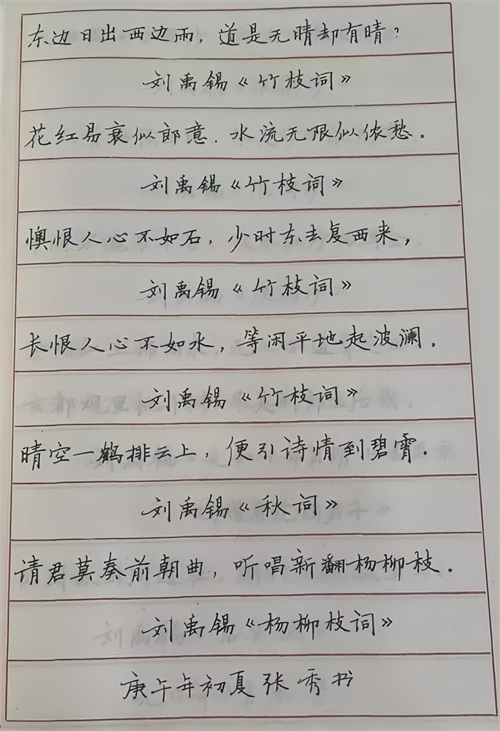 东边日出西边雨，道是无晴却有晴？
刘禹锡《竹枝词》
花红易衰似郎意．水流无限似侬愁。
刘禹锡《竹枝词》
懊恨人心不如石，少时东去复西来，
刘禹锡《竹枝词》
长恨人心不如水，等闲平地起波澜．
刘禹锡《竹枝词》
晴空一鹤排云上，便引诗情到碧霄．
刘禹锡《秋词》
请君莫奏前朝曲，听唱新翻杨柳枝．
刘禹锡《杨柳枝词》
庚午年初夏张秀书